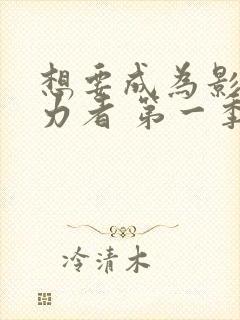 想要成為影
力者 第一季
冷清木